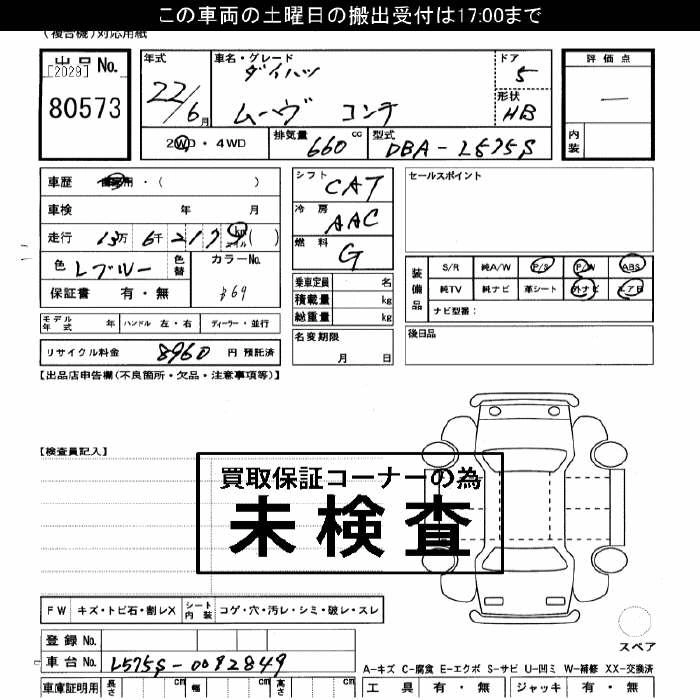 この車両の土曜日の搬出受付は17:00まで
(複合機)対応用紙
出品 No.
[2029]
80573
年式
22/6月
車名・グレード
ダイハツ
ムーヴ コンテ
ドア
5
形状
HB
評価点
―
内装
2WD・4WD
排気量 660 cc
型式 DBA-L575S
車歴 ・( )
車検 年 月
走行 13万 6千 217 9 km マイル ( )
色 Lブルー 色替
カラーNo.
保証書 有・無
シフト CAT
冷房 AAC
燃料 G
乗車定員 名
積載量 kg
総重量 kg
セールスポイント
装備品
S/R 純A/W P/S P/W ABS
純TV 純ナビ 革シート 外ナビ エアB
ナビ型番:
モデル年式 年 ハンドル 左・右 ディーラー・並行
名変期限
月 日
後日品
リサイクル料金 8960 円 預託済
【出品店申告欄(不良箇所・欠品・注意事項等)】
【検査員記入】
買取保証コーナーの為
未検査
FW キズ・トビ石・割レX シート内装 コゲ・穴・汚レ・シミ・破レ・スレ
スペア
登録 No.
車台 No. L575S-0082849
A-キズ C-腐食 E-エクボ S-サビ U-凹ミ W-補修 XX-交換済
車庫証明用 長さ cm 幅 cm 高さ cm
工具 有・無 ジャッキ 有・無